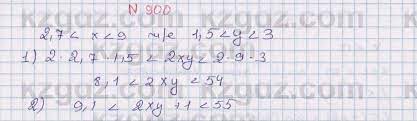 N 900
2,7 < x < 9 және 1,5 < y < 3
1) 2·2,7·1,5 < 2xy < 2·9·3
8,1 < 2xy < 54
2) 9,1 < 2xy+1 < 55